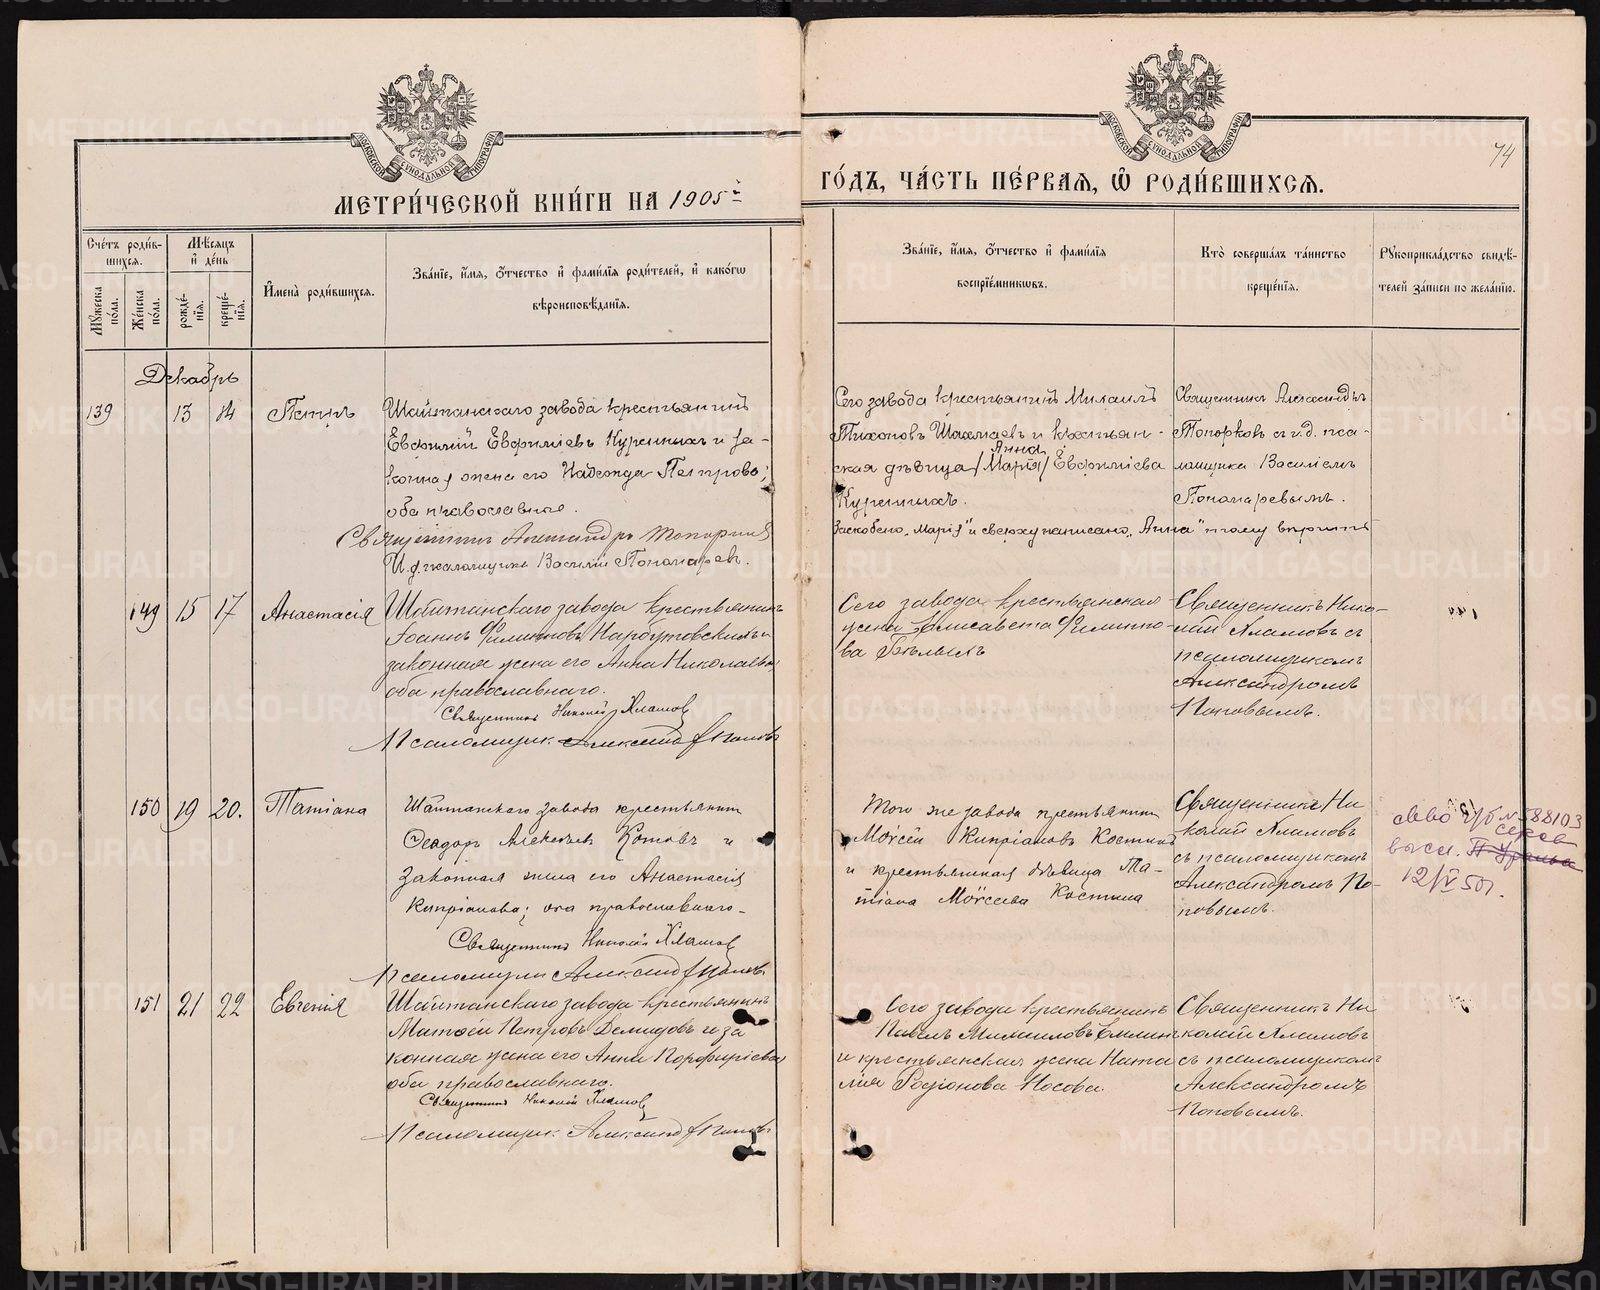 МЕТРИ́ЧЕСКОЙ КНИ́ГИ НА 1905й
ГО́ДЪ, ЧА́СТЬ ПЕ́РВАЯ, Ѽ РОДИ́ВШИХСЯ.
74
Сче́тъ роди́в-
шихся.
Мꙋ́жеска по́ла.
Же́нска по́ла.
Мѣ́сяцъ и҆ де́нь
рожде́-
нїя.
креще́-
нїя.
И҆мена̀ роди́вшихся.
Зва́нїе, и҆́мя, ѻ҆́тчество и҆ фами́лїя роди́телей, и҆ како́гѡ
вѣроисповѣ́данїя.
Зва́нїе, и҆́мя, ѻ҆́тчество и҆ фами́лїя
воспрїе́мниковъ.
Кто̀ соверша́лъ та́инство
креще́нїя.
Рꙋкоприкла́дство свидѣ́-
телей за́писи по жела́нїю.
Декабрь
139
13
14
Петръ
Шайтанскаго завода крестьянинъ
Евфимій Евфиміевъ Куренныхъ и за-
конная жена его Надежда Петрова;
оба православные.
Священникъ Александръ Топорковъ
И.д. псаломщика Василій Пономаревъ.
Сего завода крестьянинъ Михаилъ
Тихоновъ Шахмаевъ и крестьян-
Анна
ская дѣвица /Марія/ Евфиміева
Куренныхъ.
Заскоблено „Марія" и сверху написано „Анна" тому вѣрить
Священникъ Александръ
Топорковъ съ и.д. пса-
ломщика Василіемъ
Пономаревымъ.
149
15
17
Анастасія
Шайтанскаго завода крестьянинъ
Іоаннъ Филиповъ Нарбутовскихъ и
законная жена его Анна Николаева
оба православнаго.
Священникъ Николай Хламовъ
Псаломщикъ Александръ Поповъ
Сего завода крестьянская
жена Елисавета Филиппо-
ва Бѣлыхъ
Священникъ Нико-
лай Хламовъ съ
псаломщикомъ
Александромъ
Поповымъ.
150
19
20.
Татіана
Шайтанскаго завода крестьянинъ
Ѳеодоръ Алексѣевъ Котовъ и
законная жена его Анастасія
Кипріанова; оба православнаго.
Священникъ Николай Хламовъ
Псаломщикъ Александръ Поповъ
Того же завода крестьянинъ
Моѵсей Кипріановъ Костинъ
и крестьянская дѣвица Та-
тіана Моѵсеева Костина
Священникъ Ни-
колай Хламовъ
съ псаломщикомъ
Александромъ По-
повымъ.
12/V 50г.
151
21
22
Евгенія
Шайтанскаго завода крестьянинъ
Матѳей Петровъ Демидовъ и за
конная жена его Анна Порфиріева
оба православнаго.
Священникъ Николай Хламовъ
Псаломщикъ Александръ Поповъ
Сего завода крестьянинъ
Павелъ Михаиловъ Емлинъ
и крестьянская жена Ната
лія Родіонова Носова.
Священникъ Ни
колай Хламовъ
съ псаломщикомъ
Александромъ
Поповымъ.
METRIKI.GASO-URAL.RU